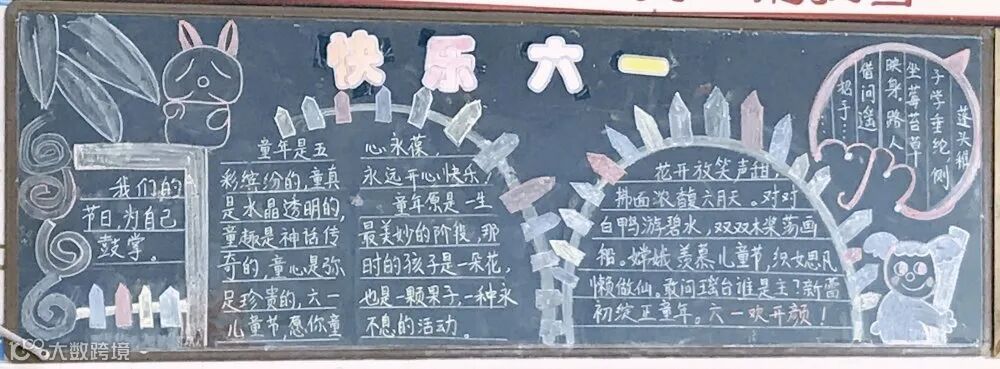 快乐六一
我们的
节日,为自己
鼓掌。
童年是五
彩缤纷的,童真
是水晶透明的,
童趣是神话传
奇的,童心是弥
足珍贵的,六一
儿童节,愿你童
心永葆,
永远开心快乐,
童年原是一生
最美妙的阶段,那
时的孩子是一朵花,
也是一颗果子,一种永
不息的活动。
花开放笑声甜
拂面浓馥六月天。对对
白鸭游碧水,双双木桨荡画
船。嫦娥羡慕儿童节,织女思凡
懒做仙。敢问瑶台谁是主?新蕾
初绽正童年。六一欢开颜!
蓬头稚
子学垂纶,侧
坐莓苔草
映身路人
借问遥
招手…
大数跨境